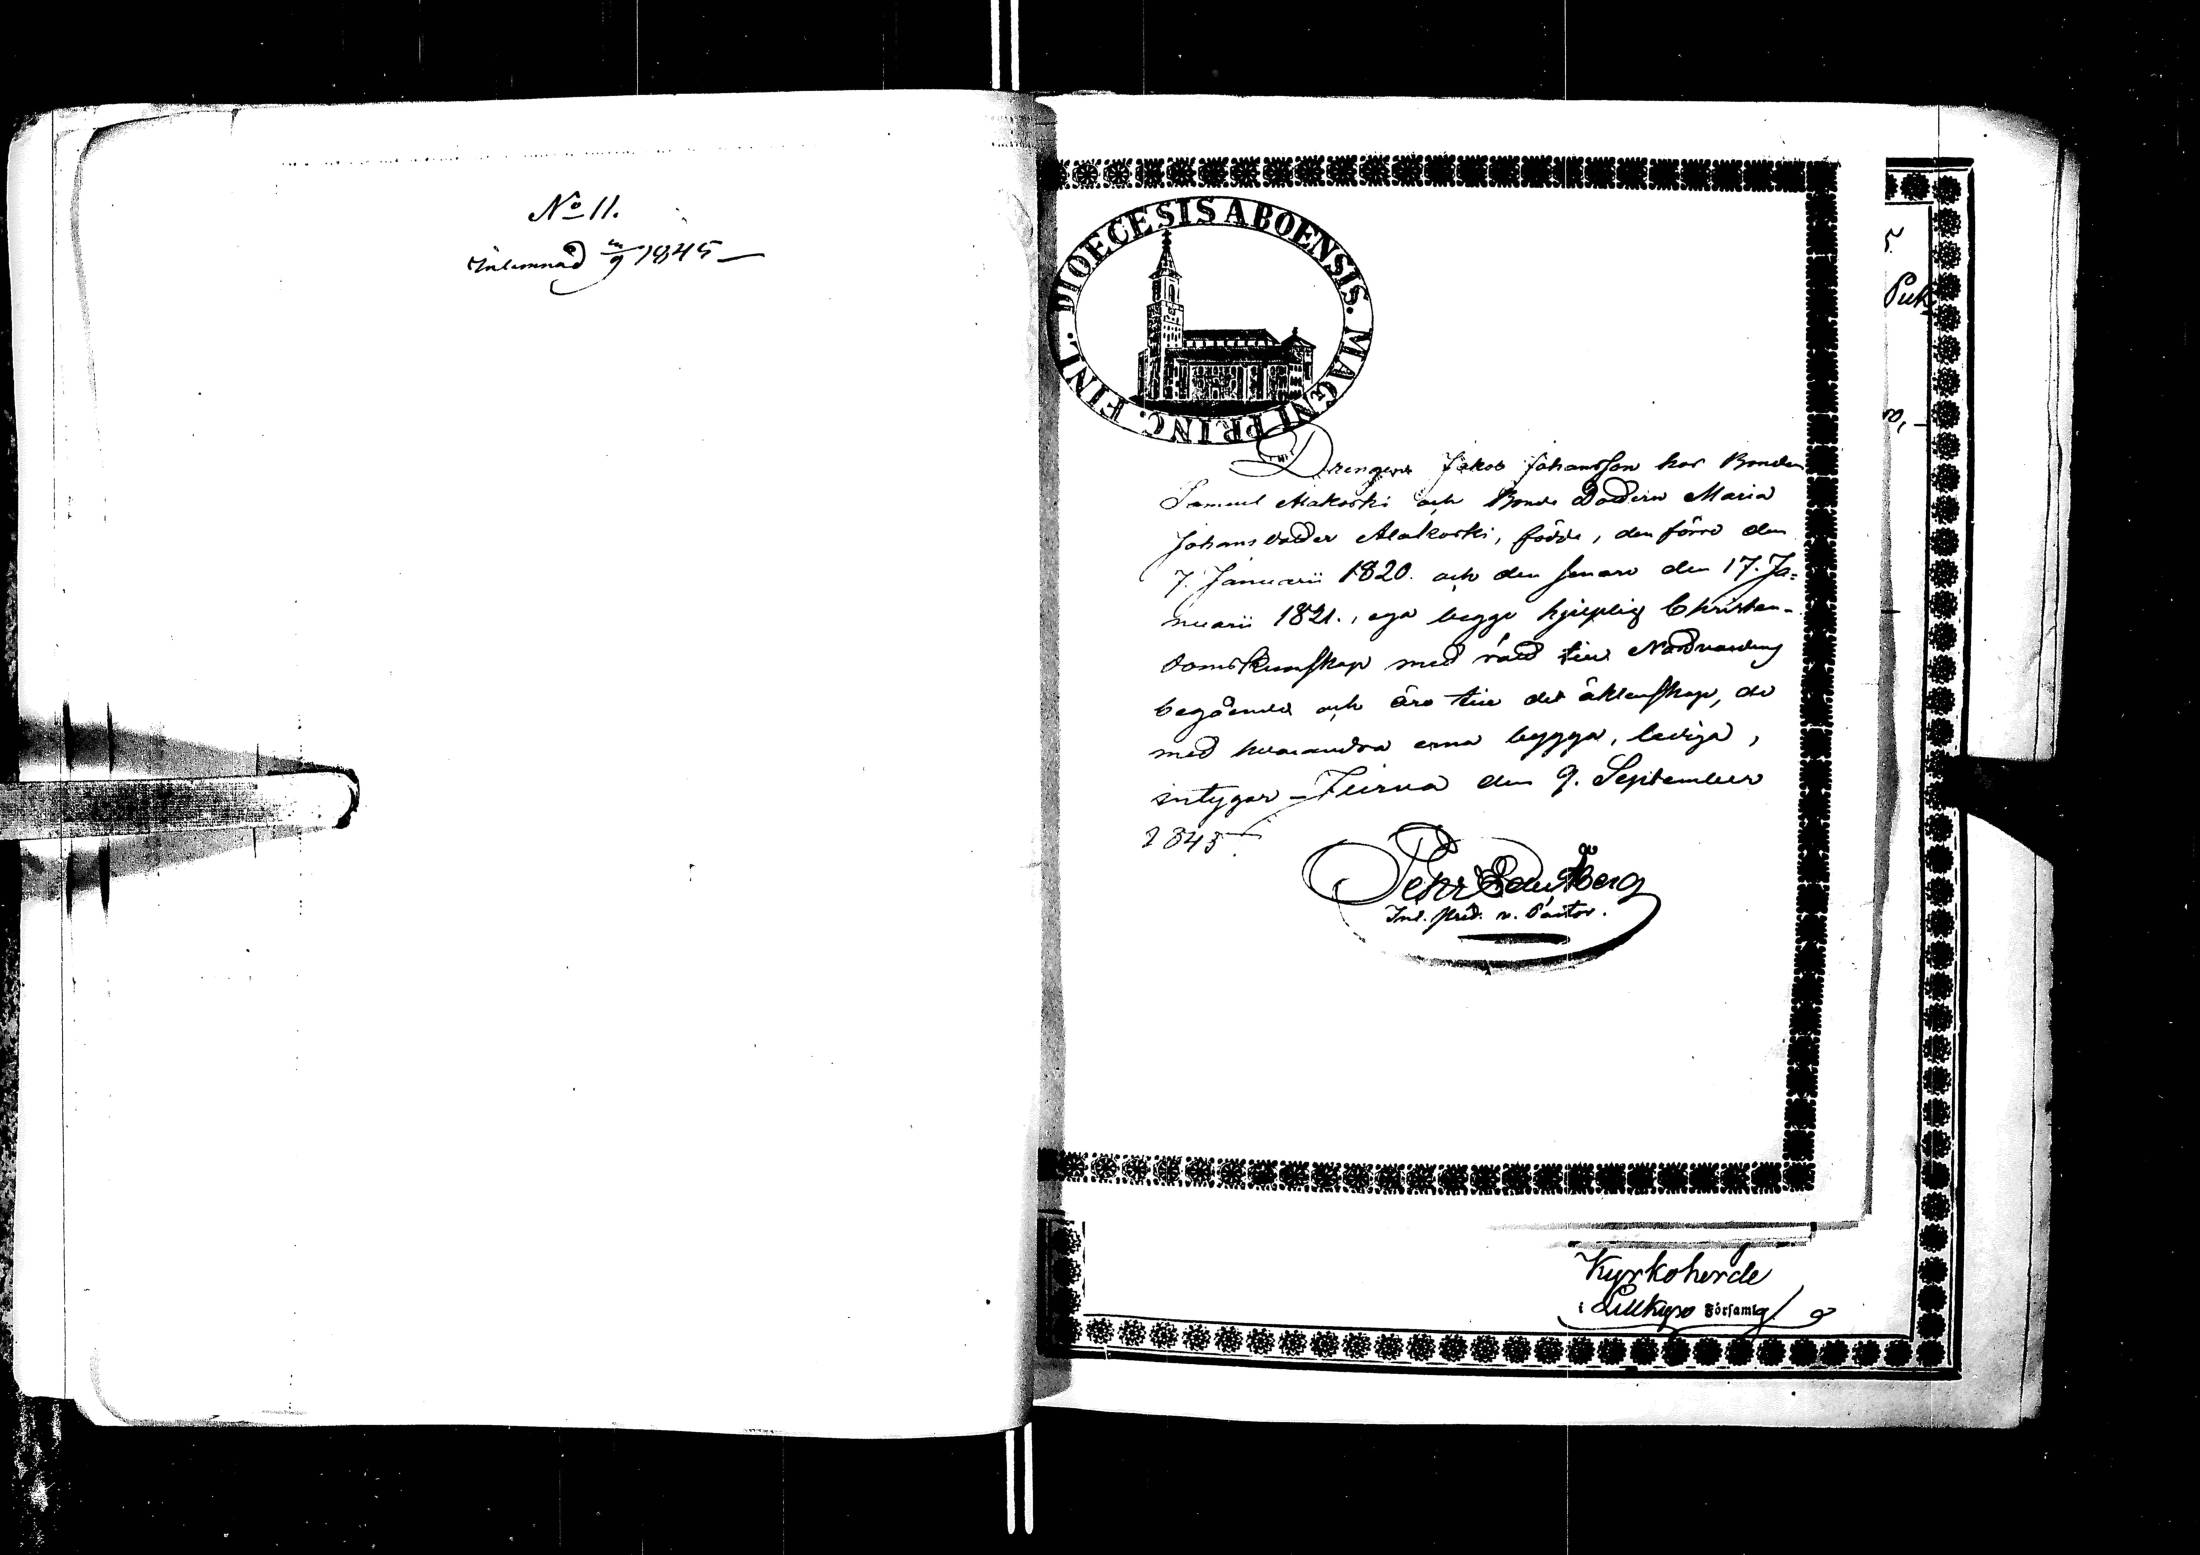 No 11.
Inlemnad /9 1845
DIOECESIS ABOENSIS. MAGNI PRINC. FINL.
Drengen Jakob Johansson hos Bonden
Samuel Alakoski och Bonde Dottern Maria
Johansdotter Alakoski, födde, den förre den
7. Januarii 1820. och den senare den 17. Ja=
nuarii 1821., ega begge hjelplig Christen-
domskunskap med Nattvardens
begående och äro till det äktenskap, de
med hvarandra ärna bygga, lediga,
intygar – Jurva den 9. September
1845.
Pehr Berg
Pred. v. Pastor.
5.
Kyrkoherde
i Lillkyro Församlg